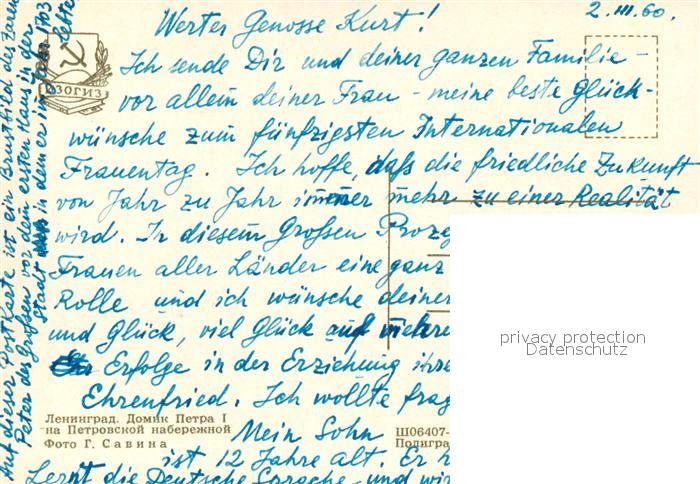 2. III. 60.
Werter Genosse Kurt!
Ich sende Dir und deiner ganzen Familie –
vor allem deiner Frau – meine beste Glück-
wünsche zum fünfzigsten Internationalen
Frauentag. Ich hoffe, daß die friedliche Zukunft
von Jahr zu Jahr immer mehr zu einer Realität
wird. In diesem Großen Proz
Frauen aller Länder eine ganz
Rolle und ich wünsche deiner
und Glück, viel Glück auf
Erfolge in der Erziehung ihre
Ehrenfried. Ich wollte frag
Mein Sohn
ist 12 Jahre alt. Er h
Lernt die Deutsche Sprache, und wir
Auf dieser Postkarte ist ein Brustbild des Zaren
Peter des Großen vor dem ersten Haus in der
Stadt in dem er im Jahr 1703
lebte
ИЗОГИЗ
Ленинград. Домик Петра I
на Петровской набережной
Фото Г. Савина
Ш06407-
Полигра
privacy protection
Datenschutz